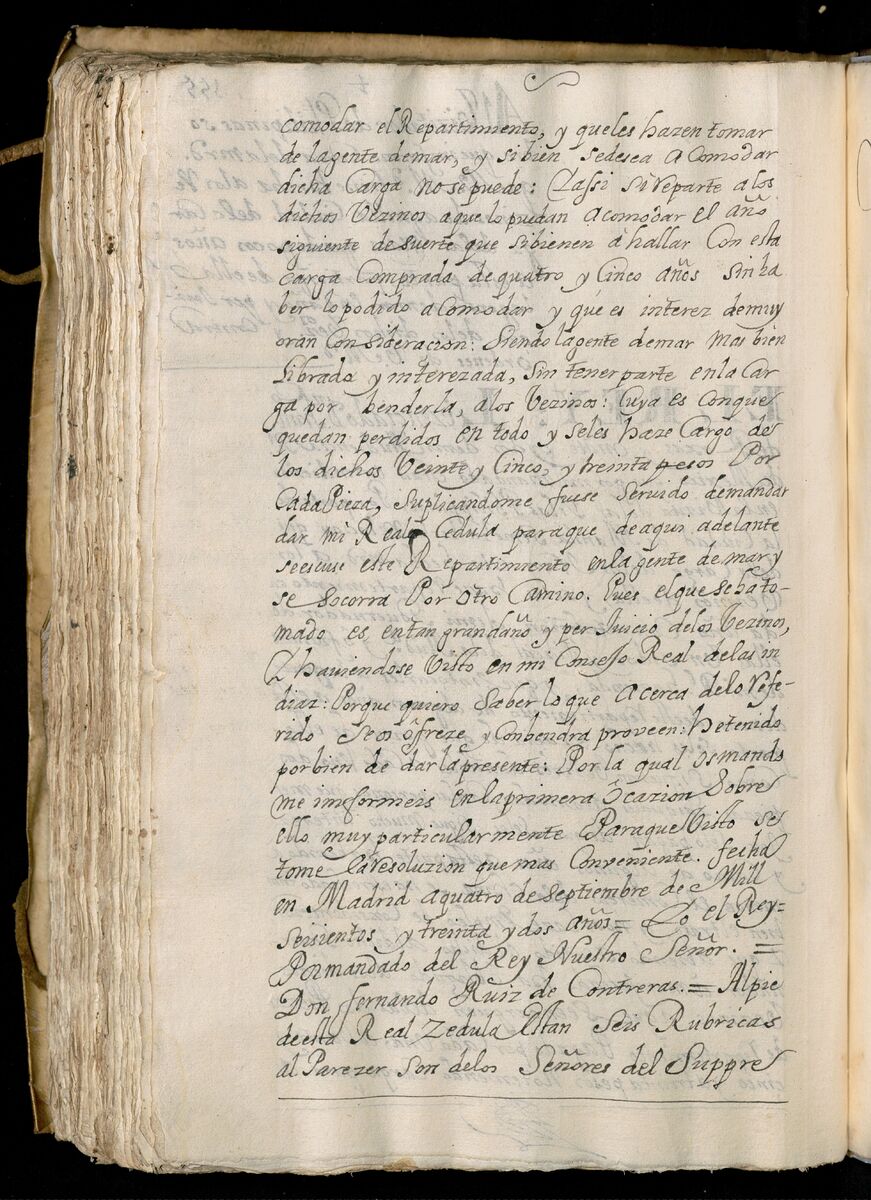 comodar el Repartimiento, y queles hazen tomar
de lagente demar, y sibien sedesea acomodar
dicha Carga nosepuede: Y assi sireparte alos
dichos Vezinos aquelo puedan acomodar el año
siguiente de suerte que sibienen à hallar Con esta
Carga Comprada dequatro y Cinco años sinha
ber lopodido acomodar y que es interez demuy
gran Consideracion: Siendo lagente demar mas bien
librada y interezada, sin tenerparte enla Car
ga por benderla, alos Vezinos: Cuya es Conque
quedan perdidos en todo y seles haze Cargo de
los dichos Veinte y Cinco, y treinta pesos Por
Cada Pieza, suplicandome fuese servido demandar
dar mi Real Cedula paraque deaqui adelante
seescuse este Repartimiento enla gente de mar y
se socorra Por otro Camino. Pues elquesehato-
mado es, entan grandaño y perJuicio delos Vezinos,
Y haviendose Visto en mi Consejo Real delas in
diaz: Porque quiero saberlo que acerca delo refe-
rido seos ôfreze y Conbendra proveen: hetenido
porbien de darlapresente: Por la qual osmando
me imformeis enlaprimera ócazion Sobre
ello muy particularmente ParaqueVisto se
tome laresoluzion que mas Conveniente. fecha
en Madrid aquatro de septiembre de Mill
seisientos y treinta ydos años = Yo el Rey =
Pormandado del Rey Nuestro Señor. =
Don fernando Ruiz de Contreras. = Alpie
deesta Real Zedula Estan Seis Rubricas
al Parezer son delos Señores del Suppre